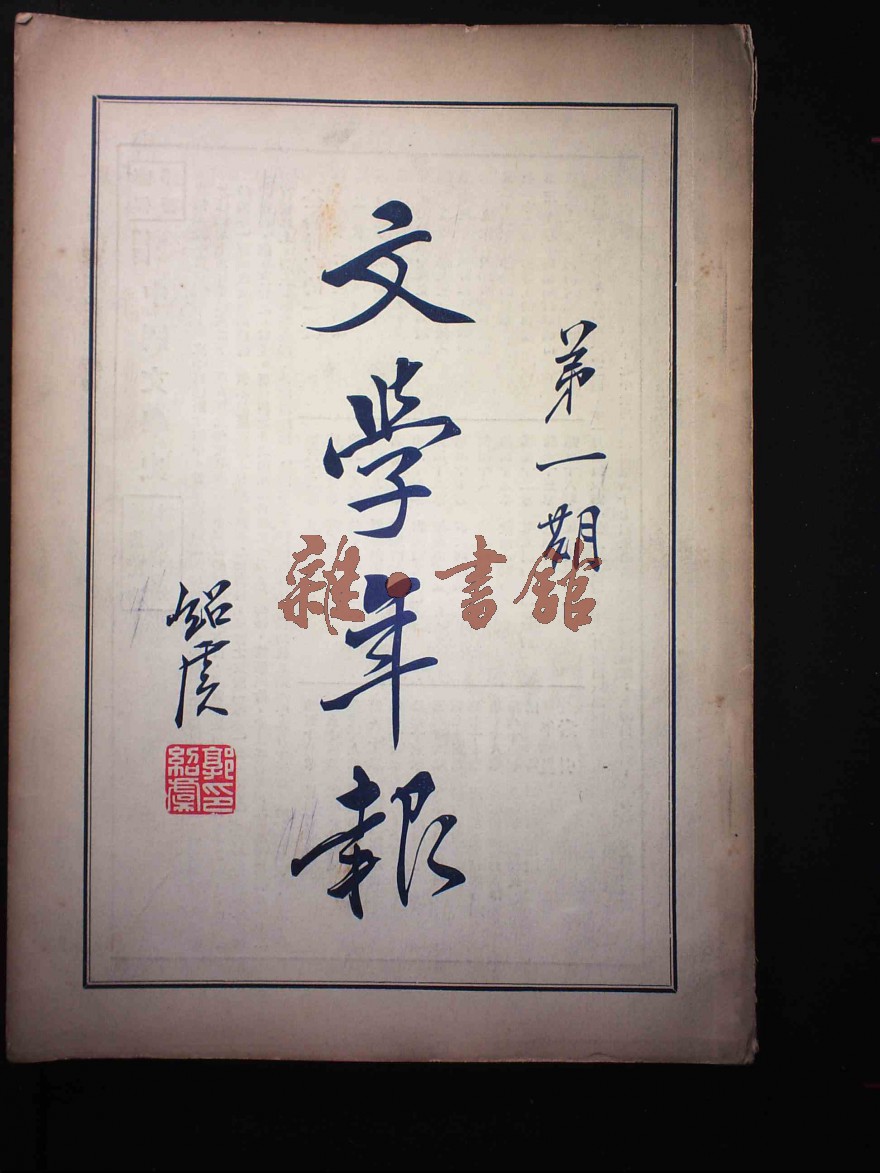 第一期
文學年報
紹虞
郭紹虞印
雜·書館